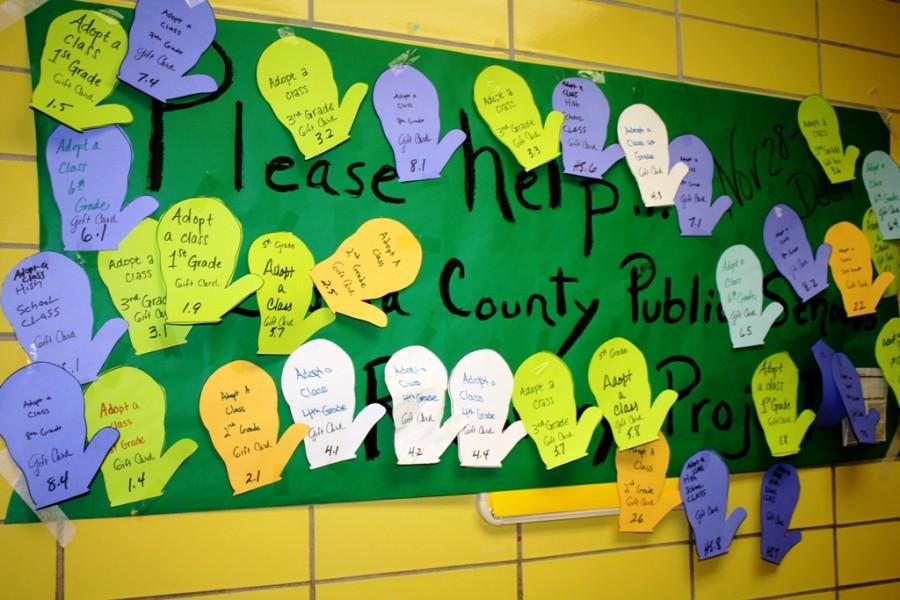 Please help...
Nov 28-
Dec
County Public Schools
Proj
Adopt a
Class
1st Grade
Gift Card
1.5
Adopt a
Class
7th Grade
Gift Card
7.4
Adopt a
Class
3rd Grade
Gift Card
3.2
Adopt a
Class
8th Grade
Gift Card
8.1
Adopt a
Class
3rd Grade
Gift Card
3.3
Adopt a
Class
High
School
CLASS
Gift Card
HS.6
Adopt a
Class
Gift Card
4.3
Gift Card
7.1
Adopt a
Class
3rd Grade
Gift Card
3.6
6th Grade
Gift Card
6.4
Adopt a
Class
6th
Grade
Gift Card
6.1
Adopt a
Class
3rd Grade
Gift Card
3.1
Adopt
a class
1st Grade
Gift Card
1.9
5th Grade
Adopt
a
Class
Gift Card
5.7
Adopt A
Class
2nd Grade
Gift Card
2.5
Adopt a
Class
6th Grade
Gift Card
6.5
Gift Card
8.2
Gift Card
2.2
Adopt a
Class
High
School
CLASS
Gift Card
.1
Adopt a
Class
8th Grade
Gift Card
8.4
Adopt a
class
Grade
Gift Card
1.4
Adopt A
Class
2nd Grade
Gift Card
2.1
Adopt a
Class
4th Grade
Gift Card
4.1
Adopt a
Class
4th Grade
Gift Card
4.2
Adopt a
Class
4th Grade
Gift Card
4.4
Adopt a
Class
3rd Grade
Gift Card
3.7
5th Grade
Adopt
a
Class
Gift Card
5.8
Adopt a
class
1st Grade
Gift Card
1.8
Class
2nd Grade
Gift Card
2.6
Adopt a
Class
High
School
CLASS
Gift Card
HS.8
Adopt a
Class
High
School
CLASS
Gift Card
HS7